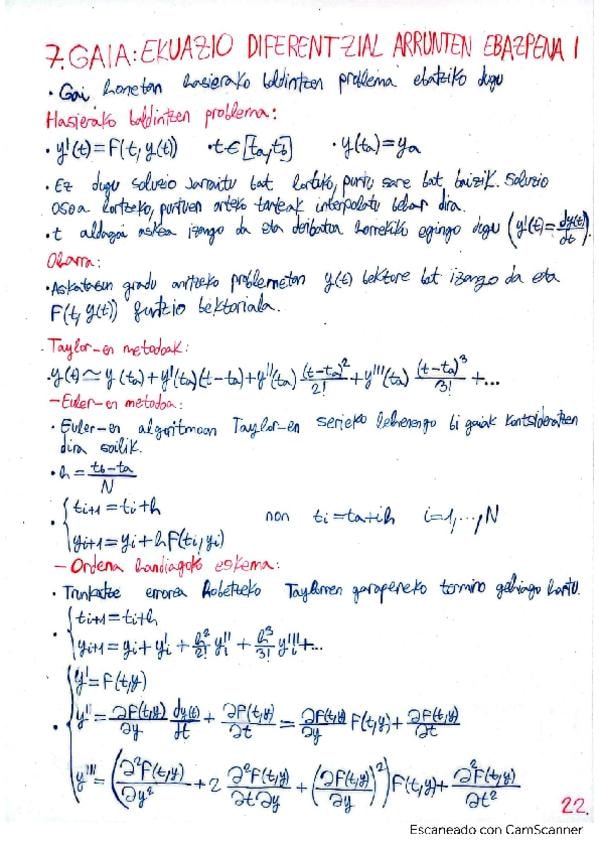 7. GAIA: EKUAZIO DIFERENTZIAL ARRUNTEN EBAZPENA I
• Gai honetan hasierako baldintzen problema ebatziko dugu
Hasierako baldintzen problema:
• y'(t)=F(t, y(t)) • t∈[ta,tb] • y(ta)=ya
• Ez dugu soluzio jarraitu bat lortuko, puntu sare bat baizik. Soluzio
osoa lortzeko, puntuen arteko tarteak interpolatu behar dira.
• t aldagai askea izango da eta deribatua horrekiko egingo dugu (y'(t)=dy(t)/dt).
Oharra:
• Askatasun gradu anitzeko problemetan y(t) bektore bat izango da eta
F(t, y(t)) funtzio bektoriala.
. Taylor-en metodoak:
• y(t)≃y(ta)+y'(ta)(t-ta)+y''(ta) (t-ta)²/2! + y'''(ta) (t-ta)³/3! + ...
- Euler-en metodoa:
• Euler-en algoritmoan Taylor-en serieko lehenengo bi gaiak kontsideratzen
dira soilik.
• h = tb-ta/N
• { ti+1=ti+h
yi+1=yi+hF(ti,yi) non ti=ta+ih i=1,...,N
- Ordena handiagoko eskema:
• Trunkatze errorea hobetzeko Taylorren garapeneko termino gehiago hartu.
• { ti+1=ti+h
yi+1=yi+y'i+h²/2! y''i+h³/3! y'''i+...
• { y'=F(t,y)
y''=∂F(t,y)/∂y dy(t)/dt + ∂F(t,y)/∂t = ∂F(t,y)/∂y F(t,y)+ ∂F(t,y)/∂t
y'''=(∂²F(t,y)/∂y² + 2 ∂²F(t,y)/∂t∂y + (∂F(t,y)/∂y)²)F(t,y)+ ∂²F(t,y)/∂t²
22.
Escaneado con CamScanner